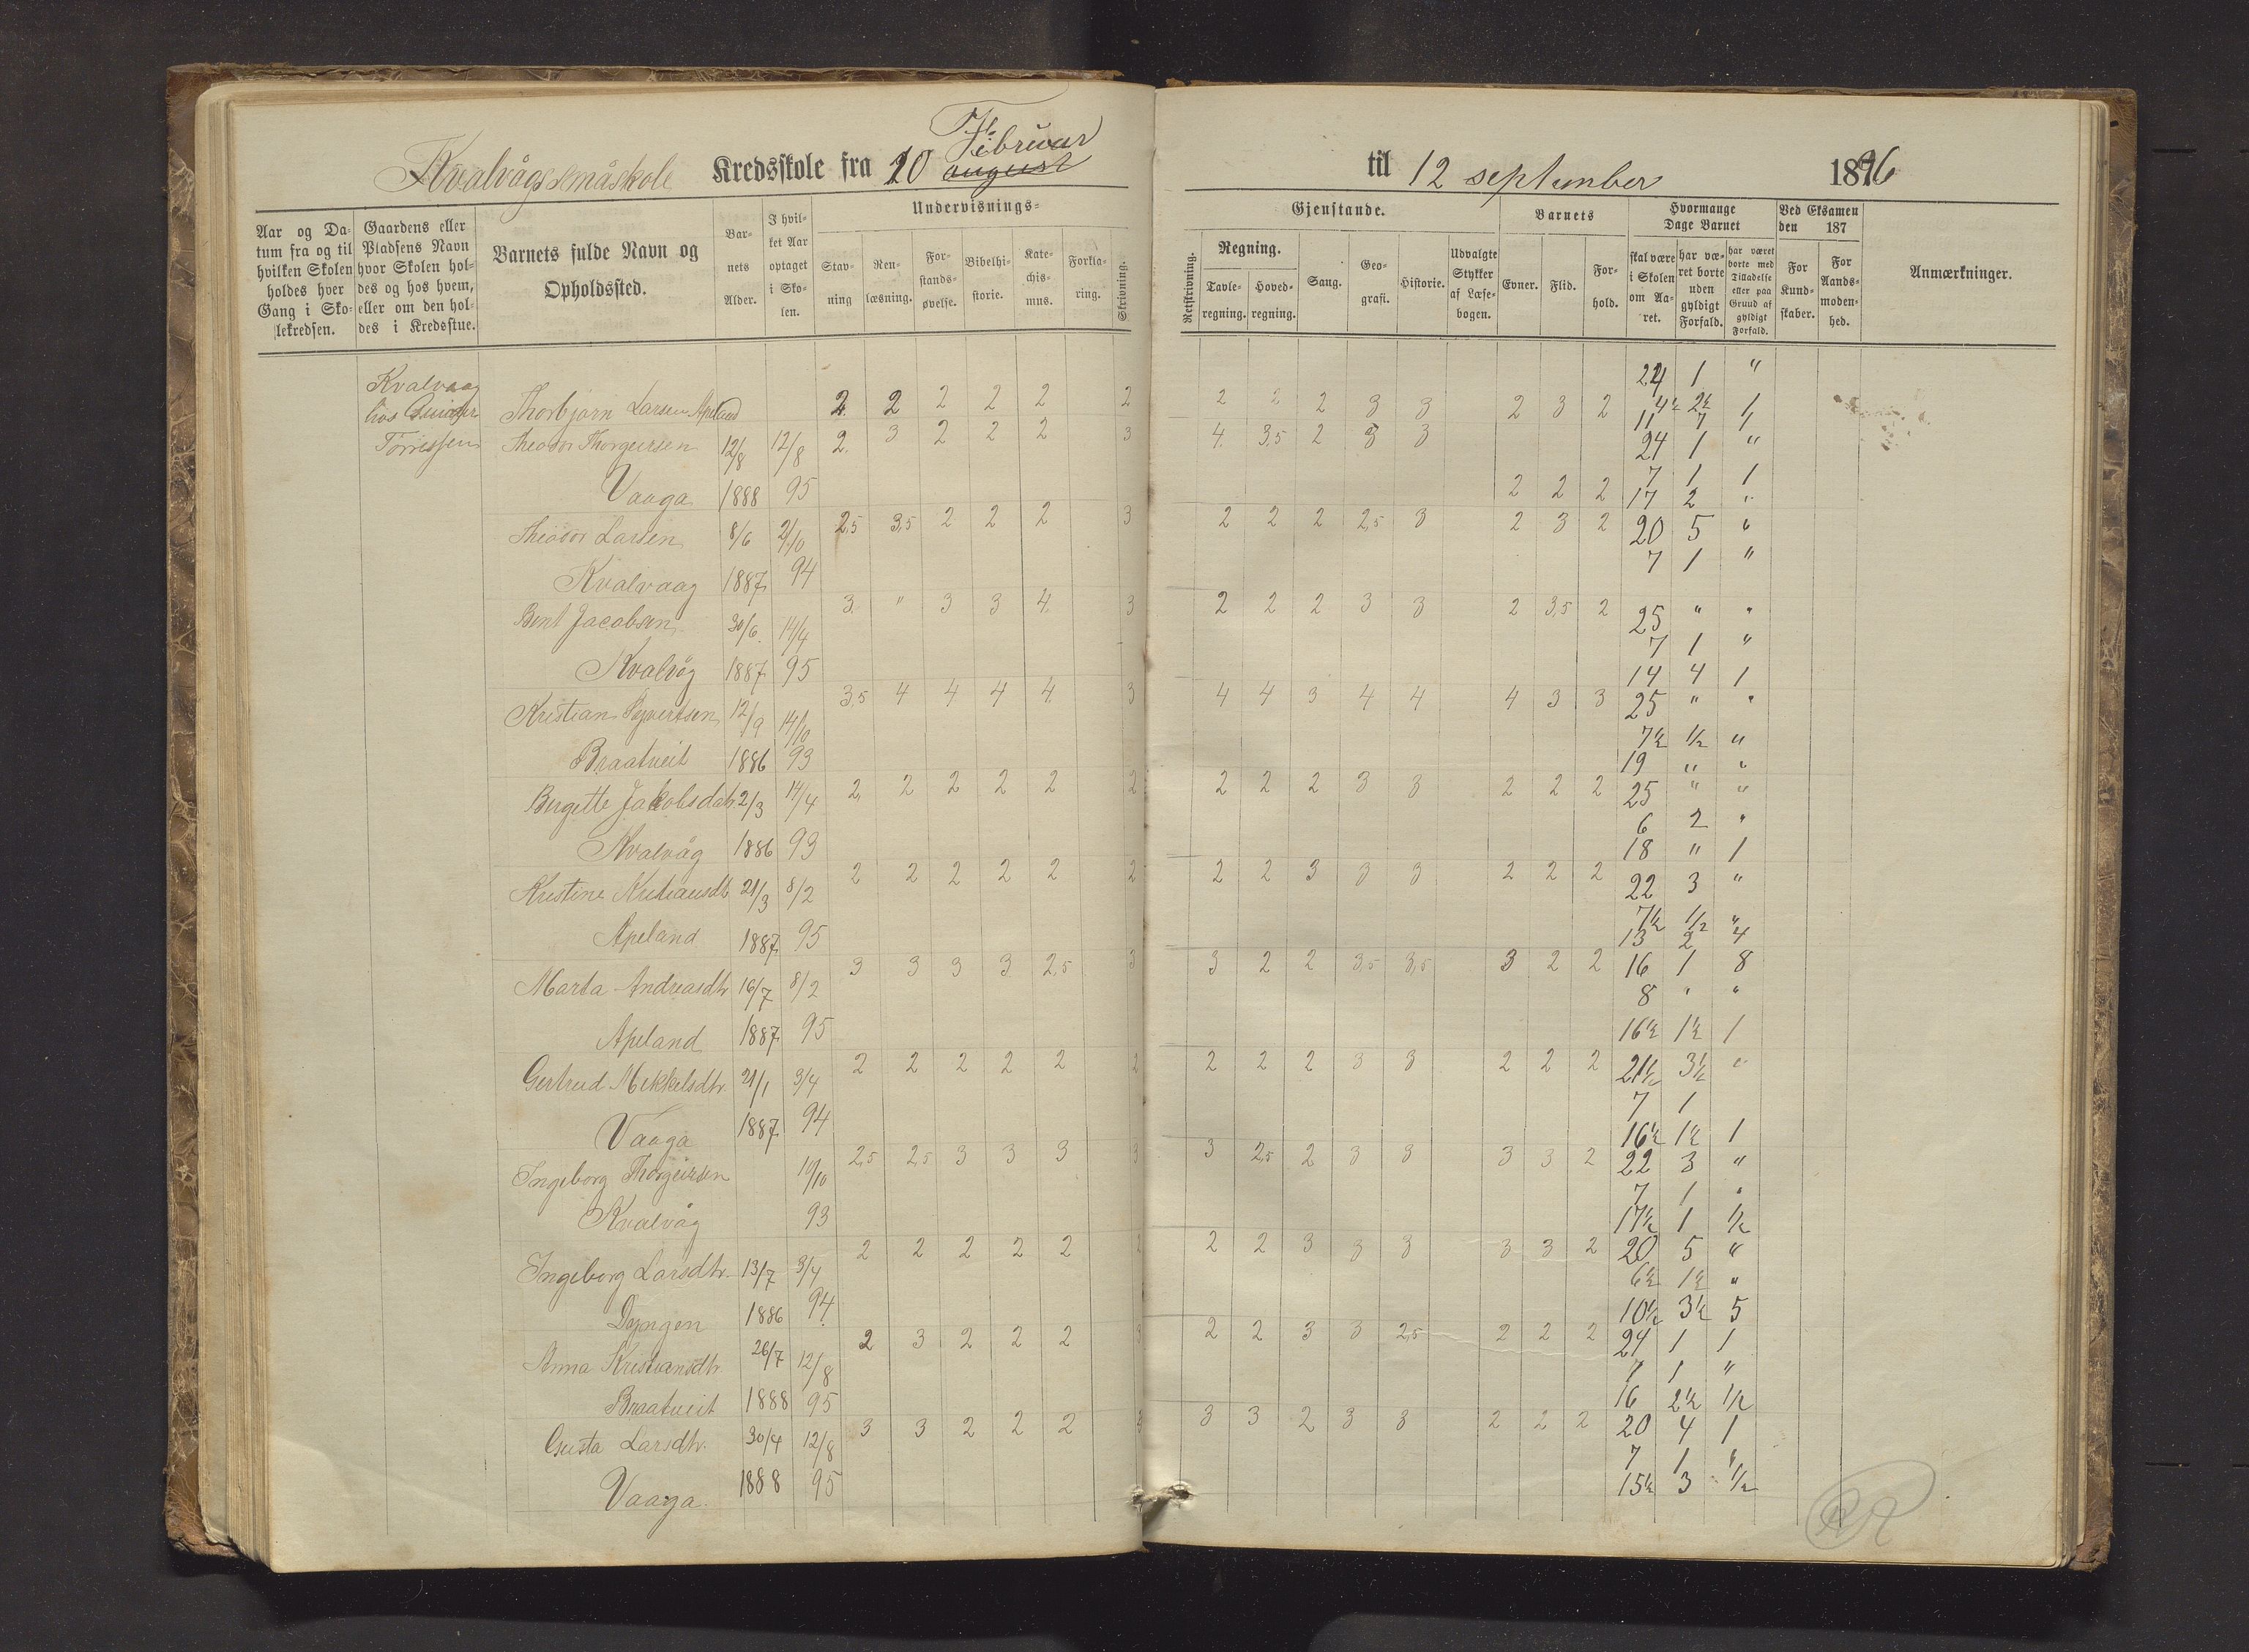 Kvalvågs småskole Kredsskole fra 10 Februar august
til 12 september 1896
Undervisnings=
Gjenstande.
Barnets
Hvormange Dage Barnet
Ved Eksamen den 187
Aar og Da=
tum fra og til
hvilken Skolen
holdes hver
Gang i Sko=
lekredsen.
Gaardens eller
Pladsens Navn
hvor Skolen hol=
des og hos hvem,
eller om den hol=
des i Kredsstue.
Barnets fulde Navn og
Opholdssted.
Bar=
nets
Alder.
I hvil=
ket Aar
optaget
i Sko=
len.
Stav=
ning
Ren=
læsning.
For=
stands=
øvelse.
Bibelhi=
storie.
Kate=
chis=
mus.
Forkla=
ring.
Skrivning.
Retskrivning.
Regning.
Tavle=
regning.
Hoved=
regning.
Sang.
Geo=
grafi.
Historie.
Udvalgte
Stykker
af Læse=
bogen.
Evner.
Flid.
For=
hold.
skal være
i Skolen
om Aa=
ret.
har væ=
ret borte
uden
gyldigt
Forfald.
har været
borte med
Tilladelse
eller paa
Grund af
gyldigt
Forfald.
For
Kund=
skaber.
For
Aands=
moden=
hed.
Anmærkninger.
24 1 "
Kvalvaag
hos
Thorbjørn Larsen Apeland 2 2 2 2 2 2 2 2 2 3 3 2 3 2 4½ 2½ 1
11 7 1
Theodor Thorgeirsen 12/8 12/8 2 3 2 2 2 3 4 3,5 2 3 3 24 1 "
7 1 1
Vaaga 1888 95 2 2 2 17 2 "
Theodor Larsen 8/6 2/10 2,5 3,5 2 2 2 3 2 2 2 2,5 3 2 3 2 20 5 "
Kvalvaag 1887 94 7 1 "
Bent Jacobsen 30/6 14/4 3 " 3 3 4 3 2 2 2 3 3 2 3,5 2 25 " "
7 1 "
Kvalvåg 1887 95 14 4 1
Kristian 12/9 14/10 3,5 4 4 4 4 3 4 4 3 4 4 4 3 3 25 " "
7½ ½ "
Braatveit 1886 93 19 " "
Bergette Jakobsdatr 2/3 14/4 2 2 2 2 2 2 2 2 2 3 3 2 2 2 25 " "
6 2 "
Kvalvåg 1886 93 18 " 1
Kristine Kristiansdtr 21/3 8/2 2 2 2 2 2 2 2 2 3 3 3 2 2 2 22 3 "
7½ ½ "
Apeland 1887 95 13 2 4
Marta Andreasdtr 16/7 8/2 3 3 3 3 2,5 3 3 2 2 3,5 3,5 3 2 2 16 1 8
8 " "
Apeland 1887 95 16½ 1½ 1
Gertrud Mikkelsdtr. 21/1 3/4 2 2 2 2 2 2 2 2 2 3 3 2 2 2 21½ 3½ "
7 1
Vaaga 1887 94 16½ 1½ 1
Ingeborg Thorgeirsen 10/10 2,5 2,5 3 3 3 3 3 2,5 2 3 3 3 3 2 22 3 "
7 1 "
Kvalvåg 93 17½ 1 ½
Ingeborg Larsdtr. 13/7 3/4 2 2 2 2 2 2 2 2 3 3 3 3 3 2 20 5 "
6½ 1½ "
Dyngen 1886 94 10½ 3½ 5
Anna Kristiansdtr 26/7 12/8 2 3 2 2 2 3 2 2 3 3 2,5 2 2 2 24 1 1
7 1 "
Braatveit 1888 95 16 2½ ½
Gusta Larsdtr. 30/4 12/8 3 3 2 2 2 3 3 3 2 3 3 2 2 2 20 4 1
7 1 "
Vaaga. 1888 95 15½ 3 ½